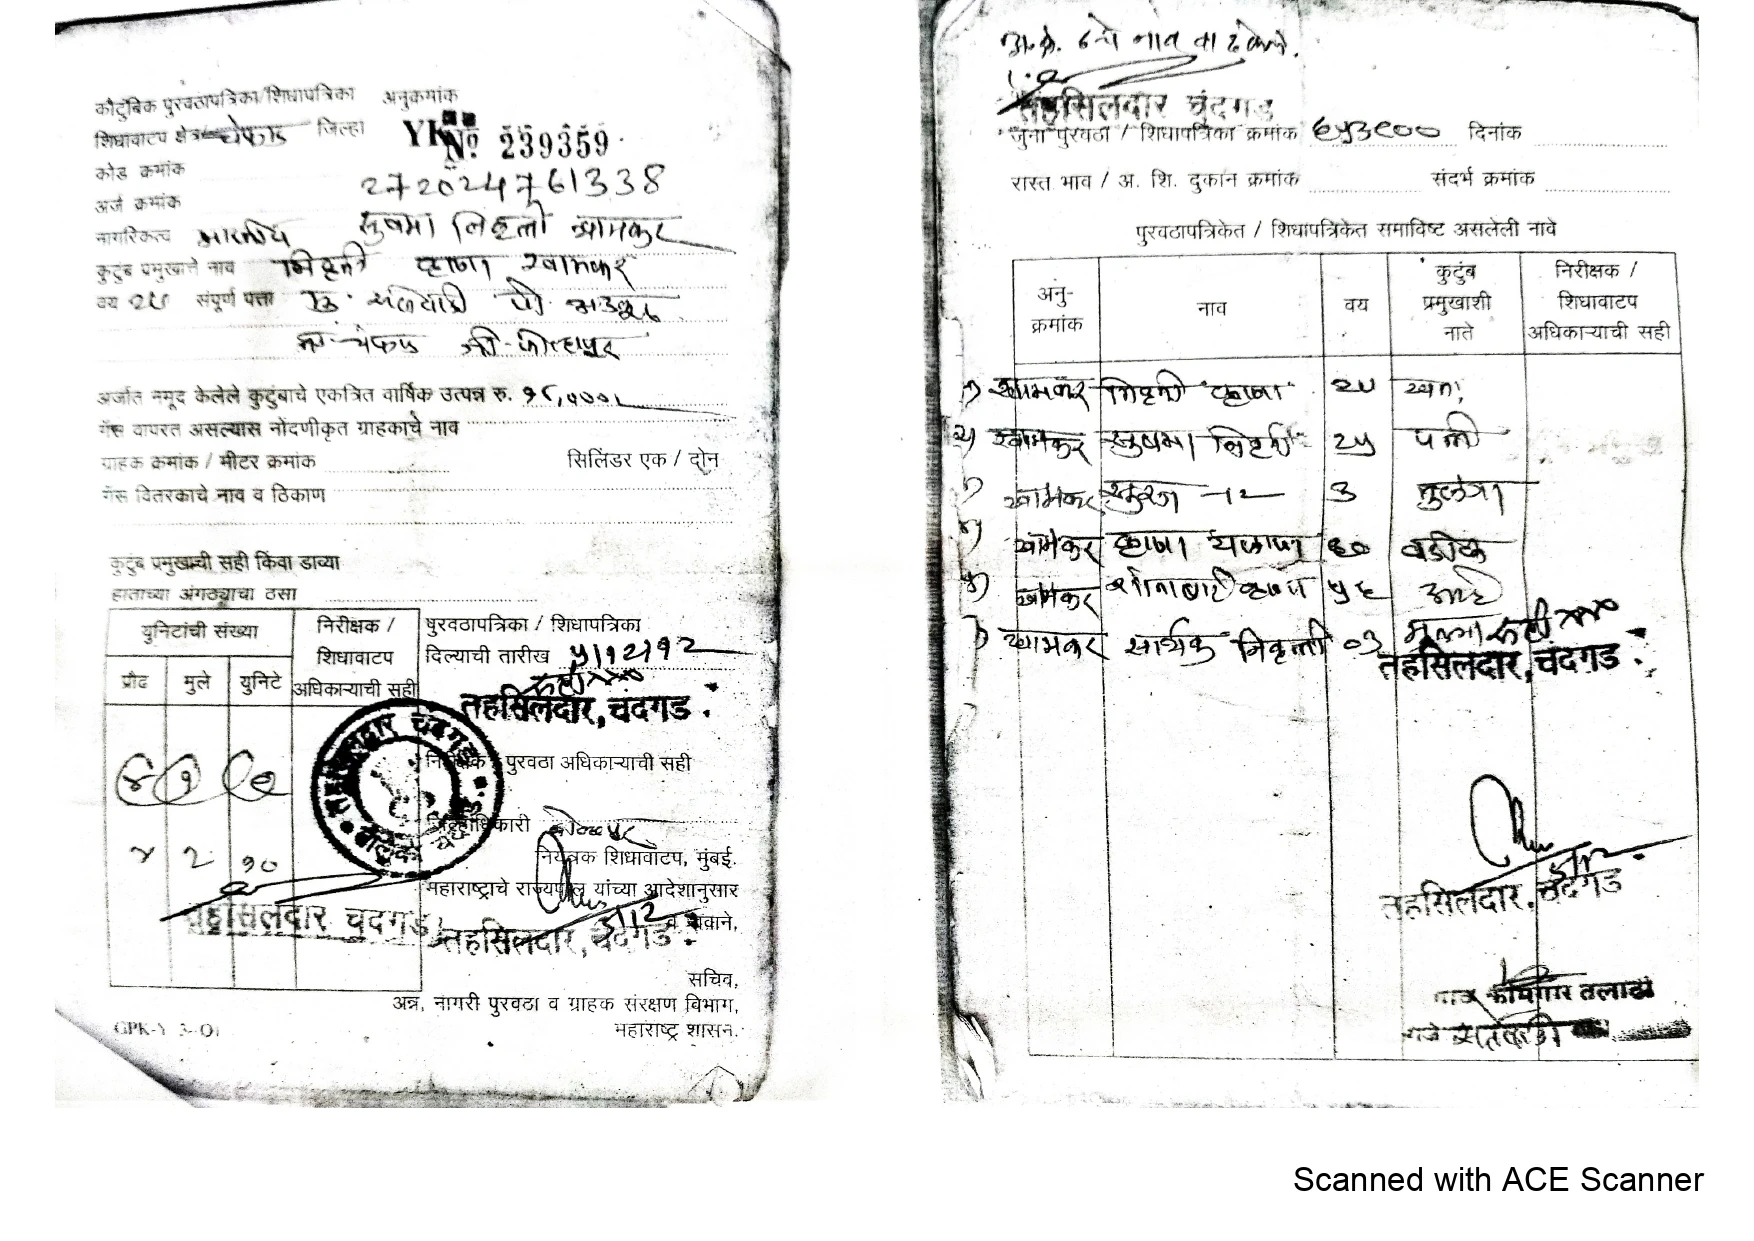 कौटुंबिक पुरवठापत्रिका/शिधापत्रिका अनुक्रमांक
शिधावाटप क्षेत्र चंदगड जिल्हा
YK
No 239359
कोड क्रमांक
272024761338
अर्ज क्रमांक
सुषमा निवृत्ती खामकर
नागरिकत्व भारतीय
कुटुंब प्रमुखाचे नाव निवृत्ती कृष्णा खामकर
वय २८ संपूर्ण पत्ता
ता. चंदगड जि. कोल्हापूर
अर्जात नमूद केलेले कुटुंबाचे एकत्रित वार्षिक उत्पन्न रु.
गॅस वापरत असल्यास नोंदणीकृत ग्राहकाचे नाव
ग्राहक क्रमांक / मीटर क्रमांक सिलिंडर एक / दोन
गॅस वितरकाचे नाव व ठिकाण
कुटुंब प्रमुखाची सही किंवा डाव्या
हाताच्या अंगठ्याचा ठसा
युनिटांची संख्या
प्रौढ मुले युनिटे
निरीक्षक /
शिधावाटप
अधिकाऱ्याची सही
४ १ ९
४ २ १०
तहसिलदार चंदगड
पुरवठापत्रिका / शिधापत्रिका
दिल्याची तारीख ५/१२/१२
तहसिलदार, चंदगड
निरीक्षक पुरवठा अधिकाऱ्याची सही
जिल्हाधिकारी कोल्हापूर
नियंत्रक शिधावाटप, मुंबई.
महाराष्ट्राचे राज्यपाल यांच्या आदेशानुसार
व नावाने,
तहसिलदार, चंदगड
सचिव,
अन्न, नागरी पुरवठा व ग्राहक संरक्षण विभाग,
महाराष्ट्र शासन.
तहसिलदार चंदगड
तालुका चंदगड
अ.क्र. ६ चे नाव वाढवले.
तहसिलदार चंदगड
जुना पुरवठा / शिधापत्रिका क्रमांक ६५३९०० दिनांक
रास्त भाव / अ. शि. दुकान क्रमांक संदर्भ क्रमांक
पुरवठापत्रिकेत / शिधापत्रिकेत समाविष्ट असलेली नावे
अनु-
क्रमांक
नाव
वय
कुटुंब
प्रमुखाशी
नाते
निरीक्षक /
शिधावाटप
अधिकाऱ्याची सही
१) खामकर निवृत्ती कृष्णा २८ स्वतः
२) खामकर सुषमा निवृत्ती २५ पत्नी
खामकर सुरज -॥- ३ मुलगा
४) खामकर कृष्णा ६० वडील
५) खामकर शोनाबाई कृष्णा ५६ आई
खामकर सार्थक निवृत्ती ०३ मुलगा
तहसिलदार, चंदगड
तहसिलदार, चंदगड
तलाठी
Scanned with ACE Scanner